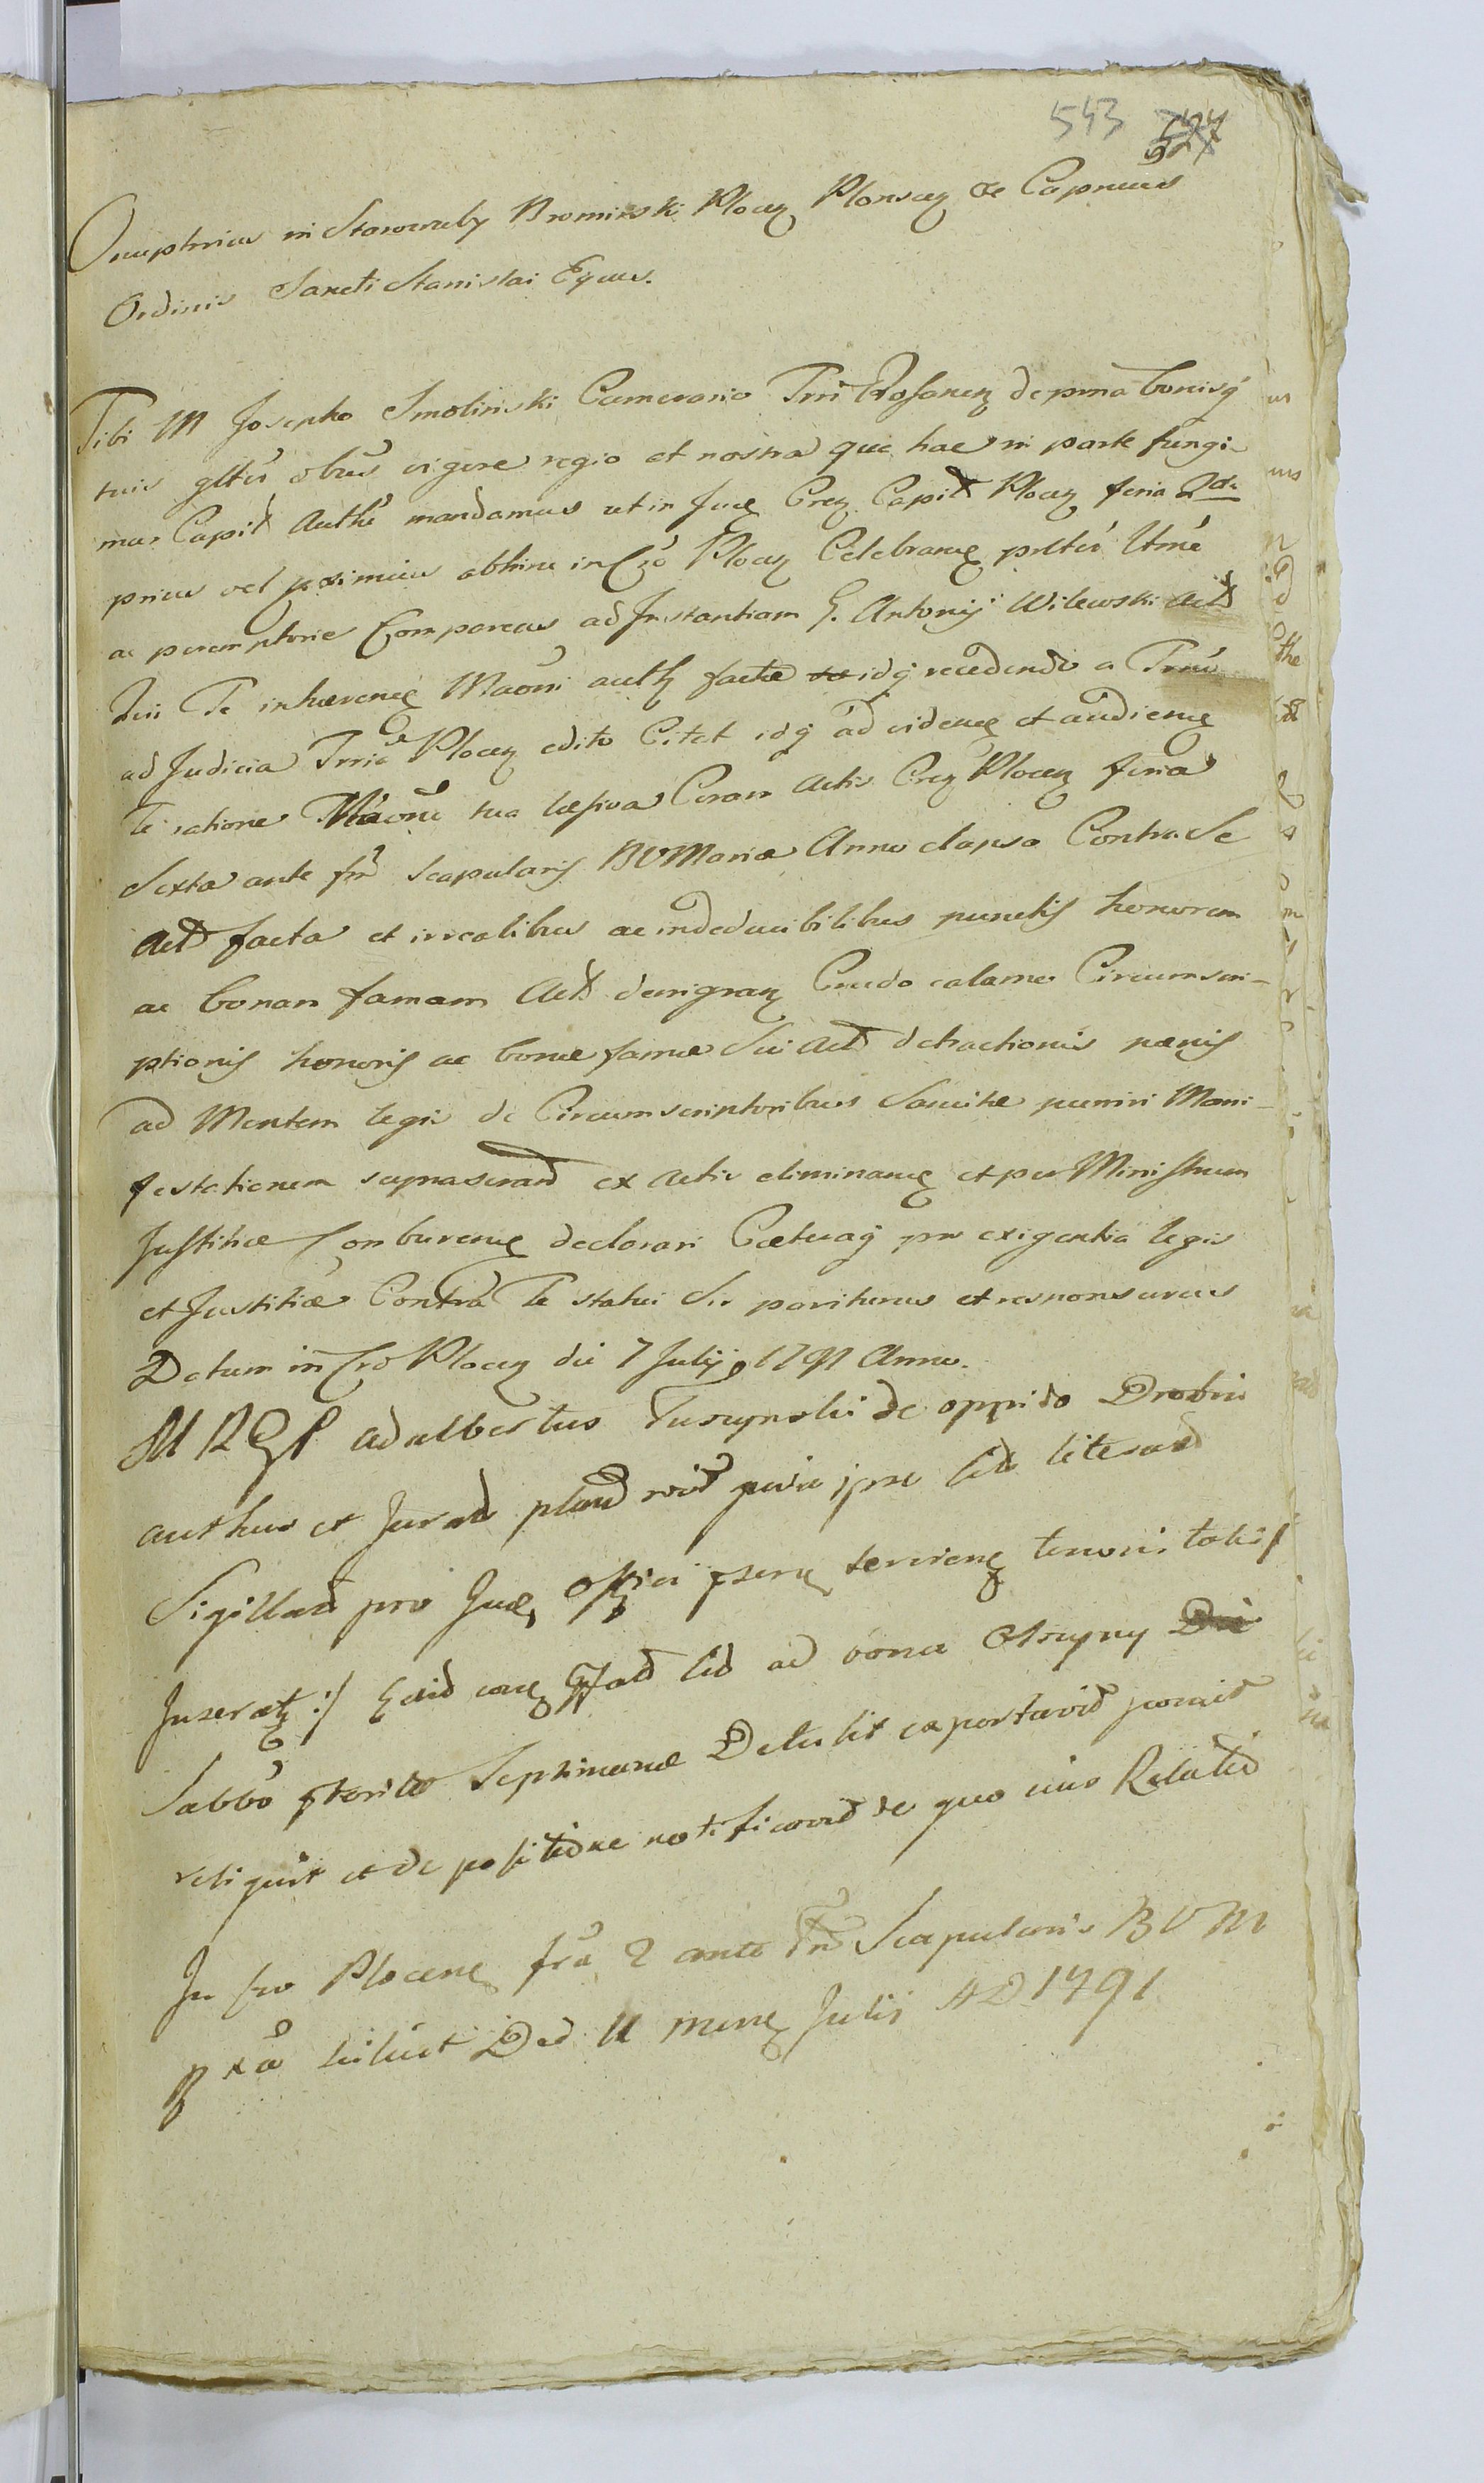 543 927
Onuphrius in Starorueby Bromirski Plocen Plonscen &c Capneus
Ordinis Sancti Stanislai Eques.
Tibi M Josepho Smolinski Camerario Trri Rosanen de psona bonisq
tuis gltér obús vigore regio et nostra qua hac in parte fungi-
mur Capit Autht mandamus ut in Jud Cren Capit Plocen feria 2da
prius vel proximius abhinc in Cro Plocen Celebrand psltér Ltme
ac peremptorie Compareas ad Instantiam G. Antonij Wilewski Act
Qui Te inhærend Maoni auth factæ idq recedendo a Trmo
ad Judicia Trria Plocen edito Citat idq ad vidend et audiend
Te ratione Máonis tua læsiva Coram Actis Cren Plocen feria
Sexta ante fm Scapularis BVMariæ Anno elapso Contra Se
Act facta et irrealibus ac indeducibilibus punctis honorem
ac bonam famam Act denigran Crudo calamo Circumscri-
ptionis honoris ac bonæ famæ Sui Act detractionis pænis
ad Mentem legis de Circumscriptoribus Sancitæ puniri Mani-
festationem suprascrand ex Actis eliminand et per Ministrum
Justitiæ Comburend declarari Cæteraq pro exigentia legis
et Justitiæ Contra Te statui Sis pariturus et responsurus
Datum in Cro Plocen die 7 Julij 1791 Anno.
M RGP Adalbertus Tuszynski de oppido Drobin
authus et Jurad pland reid quia ipse Lid literad
Sigillad pro Jud Offici pserv servien tenoris talis
Inserat :/ Ejusd cond ad bona Olszyny
Sabbo pterito Septimanæ Detulit exportavit posuit
reliquit et de positione notificavit de quo ejus Relatio
In Cro Plocens fria 2 ante fm Scapularis BVM
pxa Ded 11 mens Julij AD 1791